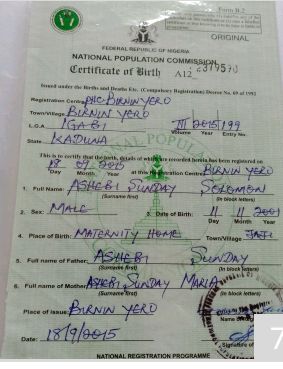 Form B.2
ORIGINAL
FEDERAL REPUBLIC OF NIGERIA
NATIONAL POPULATION COMMISSION
Certificate of Birth A12
Issued under the Births and Deaths Etc. (Compulsory Registration) Decree No. 69 of 1992
Registration Centre PHC BIRNIN YERO
Town/Village BIRNIN YERO
L.G.A. IGABI III 2015 199
Volume Year Entry No.
State KADUNA
This is to certify that the birth, details of which recorded herein has been registered on
18 09 2015 at this Registration Centre BIRNIN YERO
Day Month Year
1. Full Name: ASHEBI SUNDAY SOLOMON
(Surname first) (In block letters)
2. Sex: MALE 3. Date of Birth: 11 11 2001
Day Month Year
4. Place of Birth: MATERNITY HOME Town/Village JATI
5. Full name of Father: ASHEBI SUNDAY
(Surname first) (In block letters)
6. Full name of Mother: ASHEBI SUNDAY MARIA
(Surname first) (In block letters)
Place of issue: BIRNIN YERO
Date: 18/9/2015
Signature of
NATIONAL REGISTRATION PROGRAMME
7